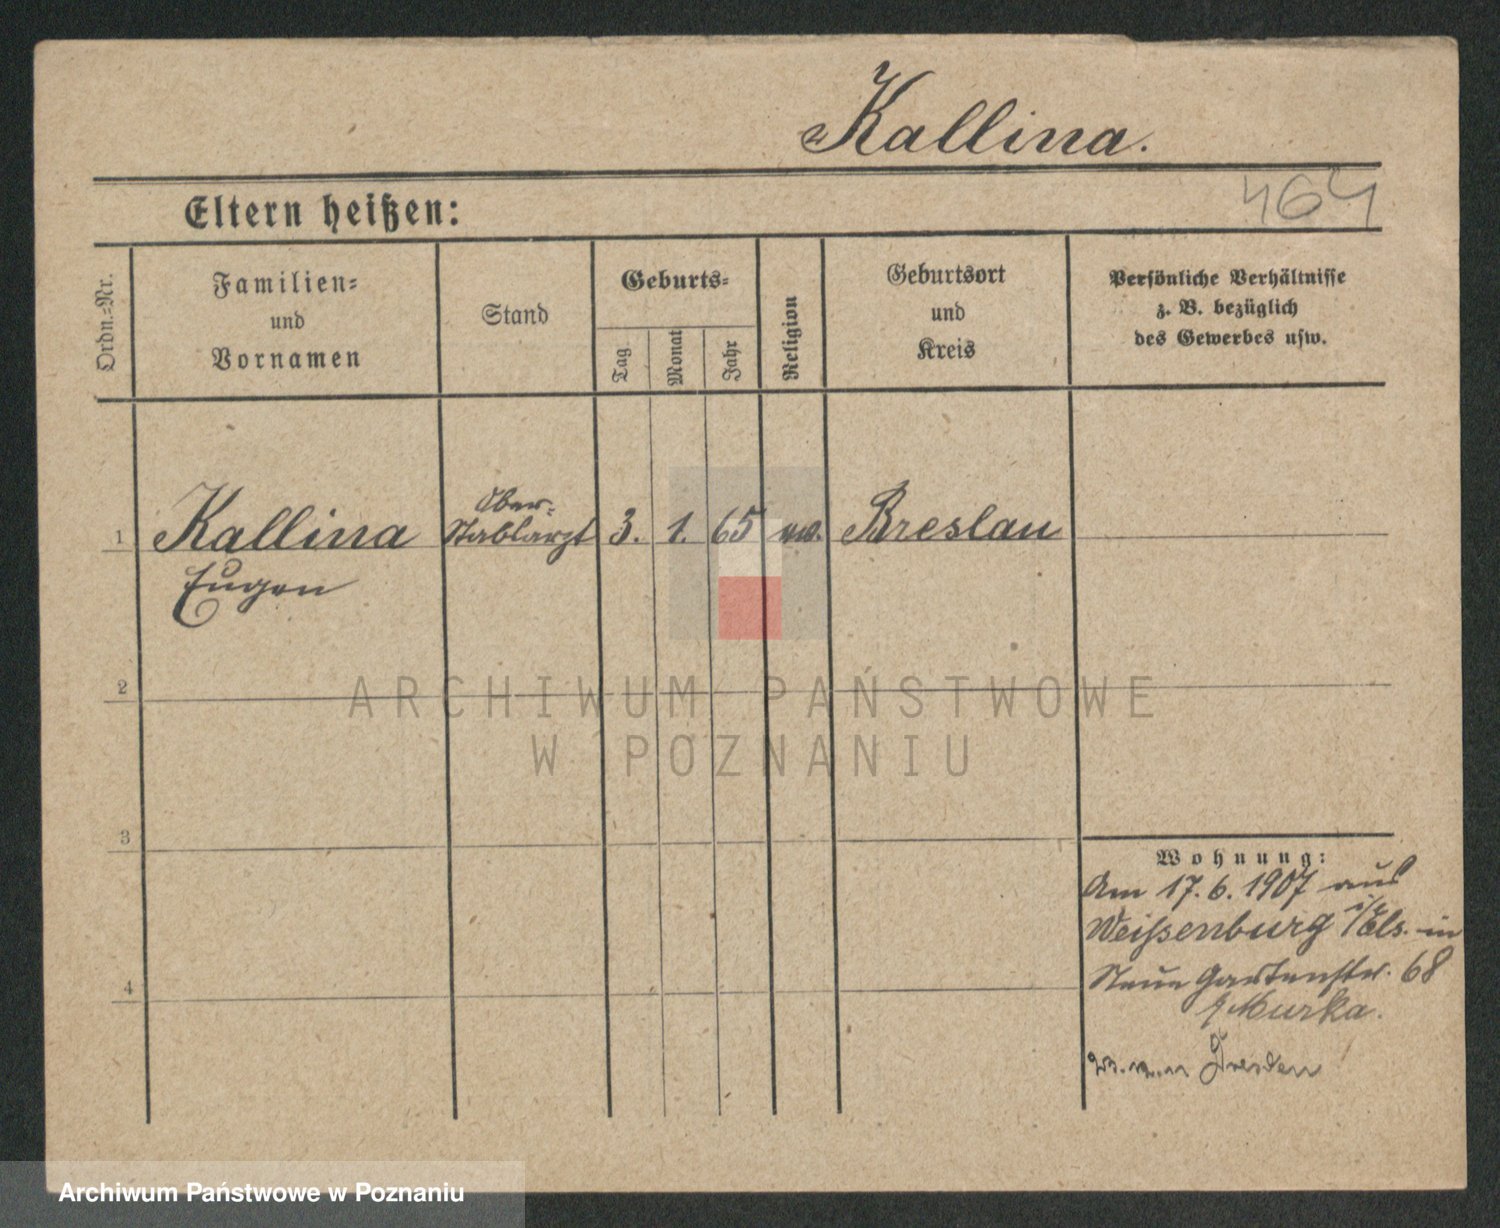 Kallina.
464
Eltern heißen:
Ordn.=Nr.
Familien=
und
Vornamen
Stand
Geburts=
Tag
Monat
Jahr
Religion
Geburtsort
und
Kreis
Persönliche Verhältnisse
z. B. bezüglich
des Gewerbes usw.
1 Kallina Ober= Stabsarzt 3. 1. 65 ev. Breslau
Eugen
2
ARCHIWUM PAŃSTWOWE
W POZNANIU
3
Wohnung:
Am 17.6.1907 aus
Weißenburg i/Els. in
Neue Gartenstr. 68
b/Murka.
4
Dresden
Archiwum Państwowe w Poznaniu